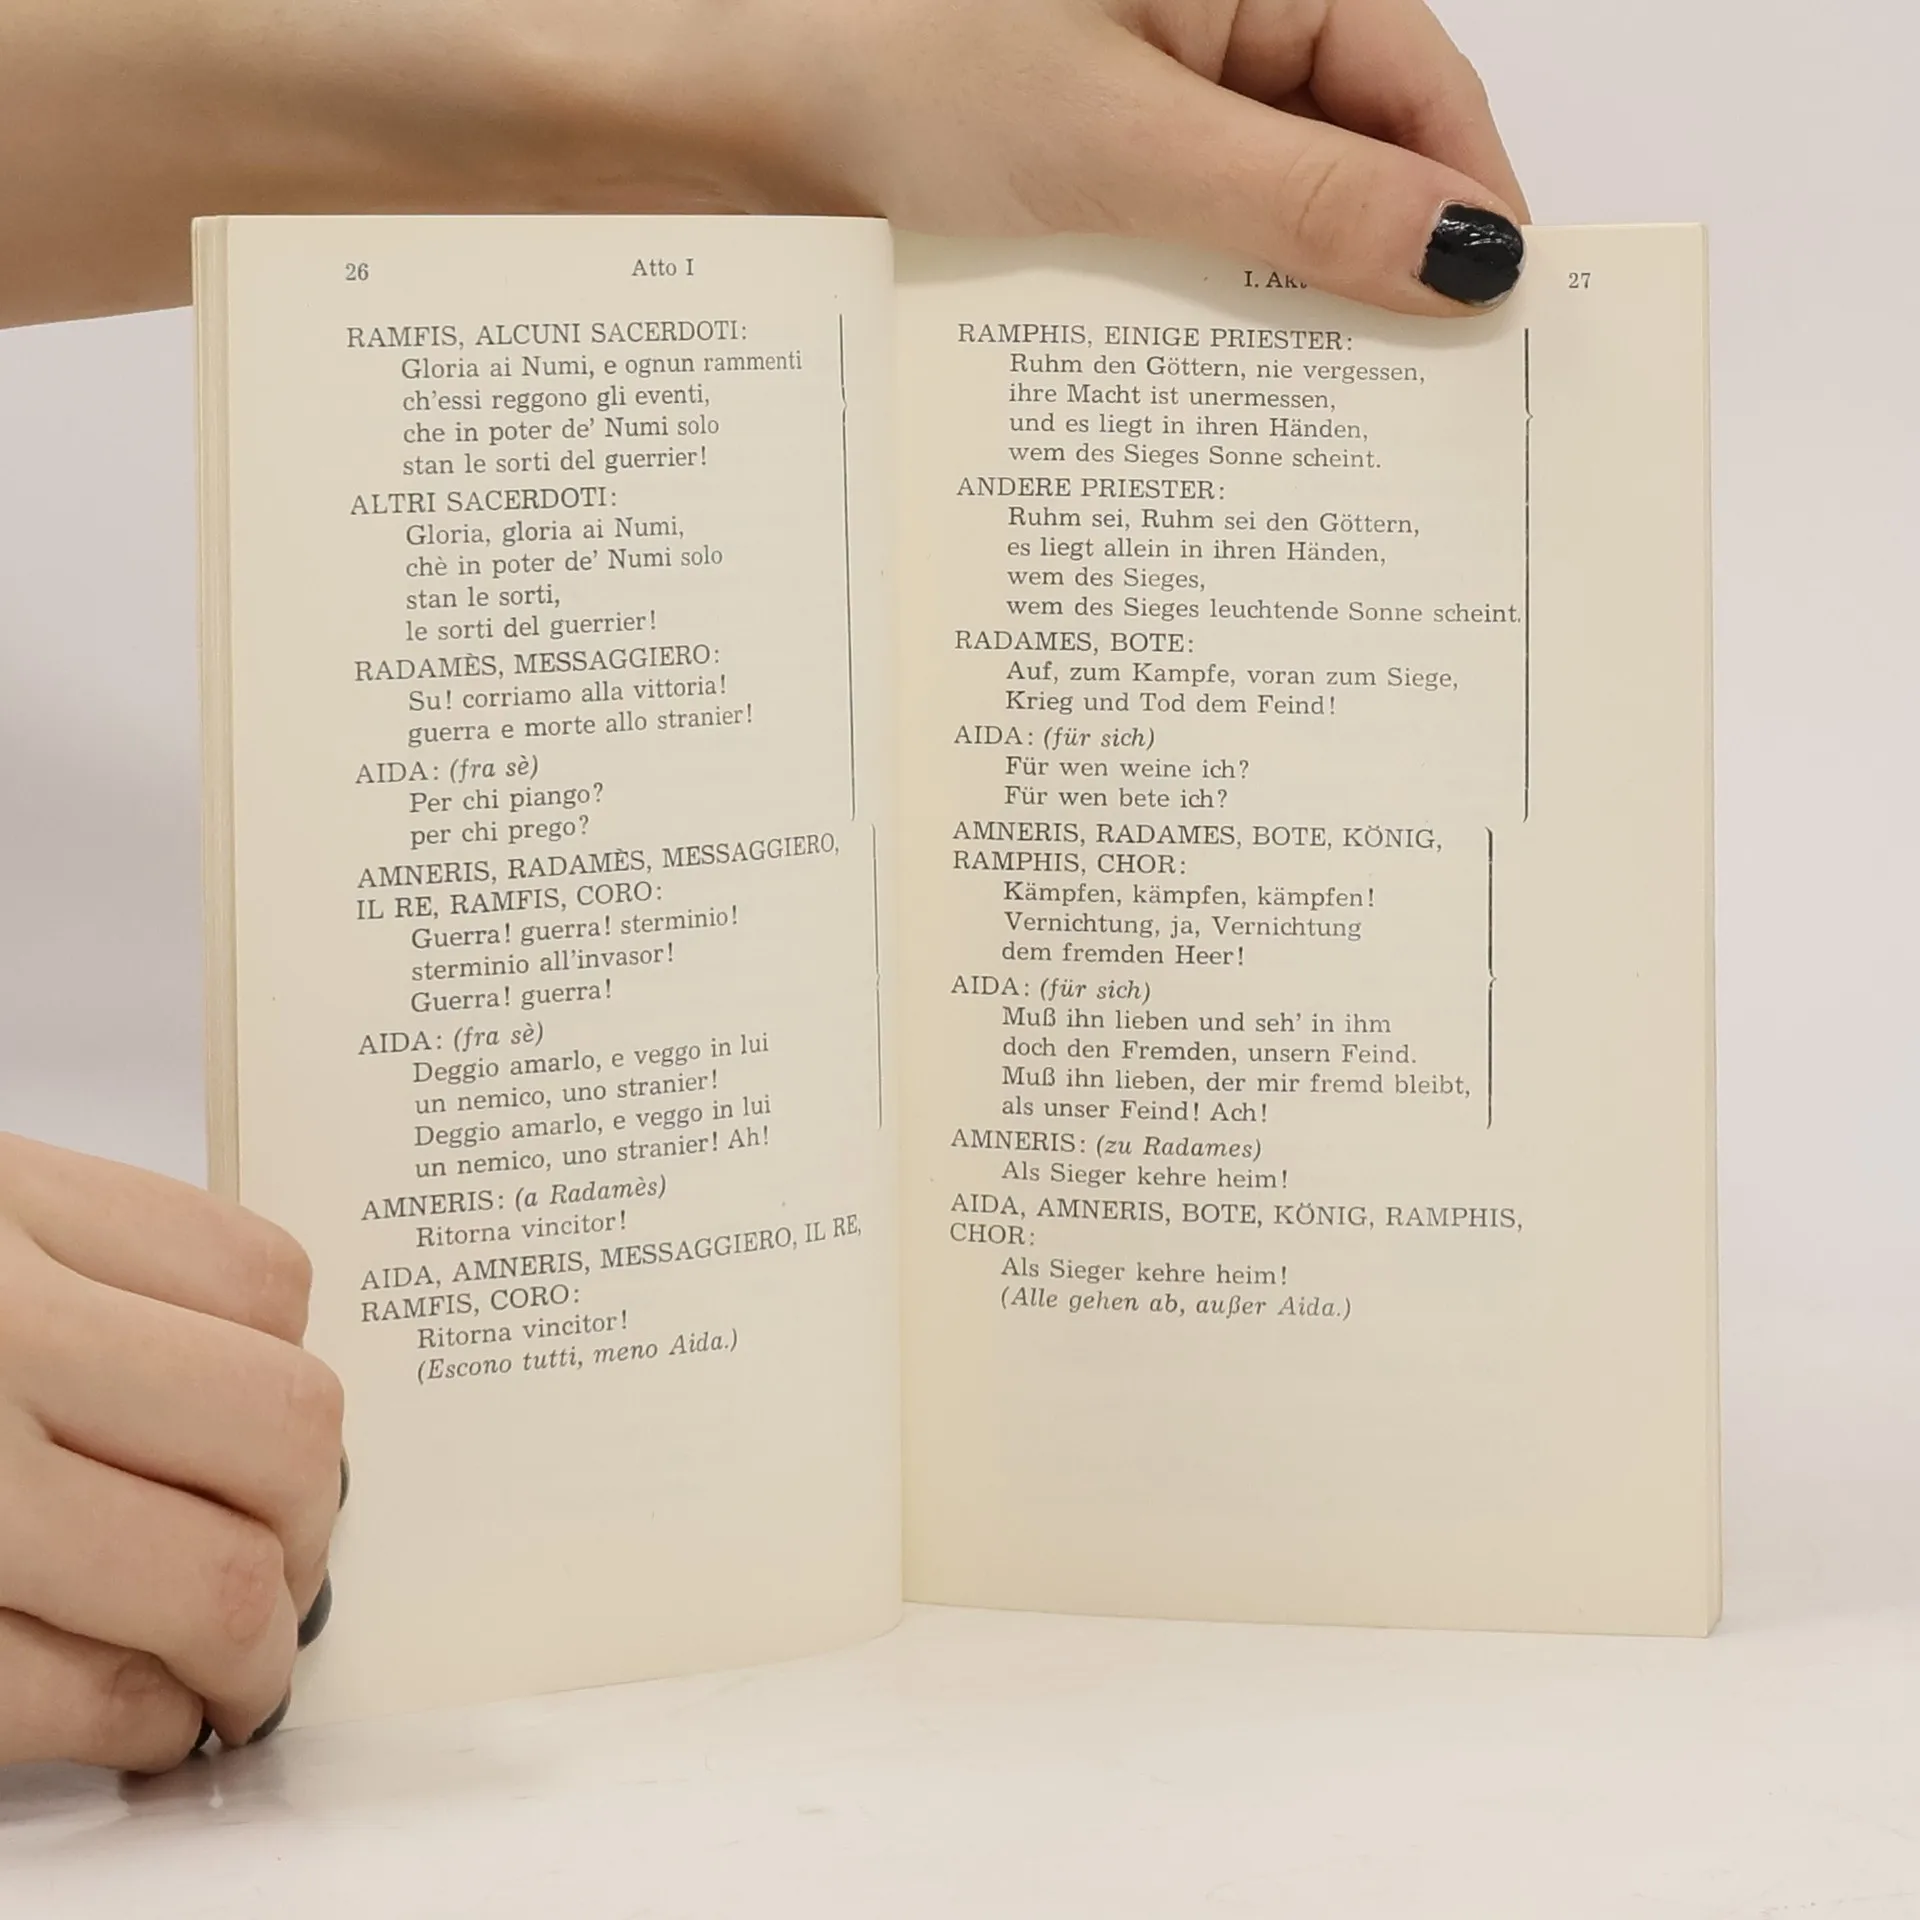 26 Atto I
RAMFIS, ALCUNI SACERDOTI:
Gloria ai Numi, e ognun rammenti
ch'essi reggono gli eventi,
che in poter de' Numi solo
stan le sorti del guerrier!
ALTRI SACERDOTI:
Gloria, gloria ai Numi,
chè in poter de' Numi solo
stan le sorti,
le sorti del guerrier!
RADAMÈS, MESSAGGIERO:
Su! corriamo alla vittoria!
guerra e morte allo stranier!
AIDA: (fra sè)
Per chi piango?
per chi prego?
AMNERIS, RADAMÈS, MESSAGGIERO,
IL RE, RAMFIS, CORO:
Guerra! guerra! sterminio!
sterminio all'invasor!
Guerra! guerra!
AIDA: (fra sè)
Deggio amarlo, e veggo in lui
un nemico, uno stranier!
Deggio amarlo, e veggo in lui
un nemico, uno stranier! Ah!
AMNERIS: (a Radamès)
Ritorna vincitor!
AIDA, AMNERIS, MESSAGGIERO, IL RE,
RAMFIS, CORO:
Ritorna vincitor!
(Escono tutti, meno Aida.)
I. 27
RAMPHIS, EINIGE PRIESTER:
Ruhm den Göttern, nie vergessen,
ihre Macht ist unermessen,
und es liegt in ihren Händen,
wem des Sieges Sonne scheint.
ANDERE PRIESTER:
Ruhm sei, Ruhm sei den Göttern,
es liegt allein in ihren Händen,
wem des Sieges,
wem des Sieges leuchtende Sonne scheint.
RADAMES, BOTE:
Auf, zum Kampfe, voran zum Siege,
Krieg und Tod dem Feind!
AIDA: (für sich)
Für wen weine ich?
Für wen bete ich?
AMNERIS, RADAMES, BOTE, KÖNIG,
RAMPHIS, CHOR:
Kämpfen, kämpfen, kämpfen!
Vernichtung, ja, Vernichtung
dem fremden Heer!
AIDA: (für sich)
Muß ihn lieben und seh' in ihm
doch den Fremden, unsern Feind.
Muß ihn lieben, der mir fremd bleibt,
als unser Feind! Ach!
AMNERIS: (zu Radames)
Als Sieger kehre heim!
AIDA, AMNERIS, BOTE, KÖNIG, RAMPHIS,
CHOR:
Als Sieger kehre heim!
(Alle gehen ab, außer Aida.)